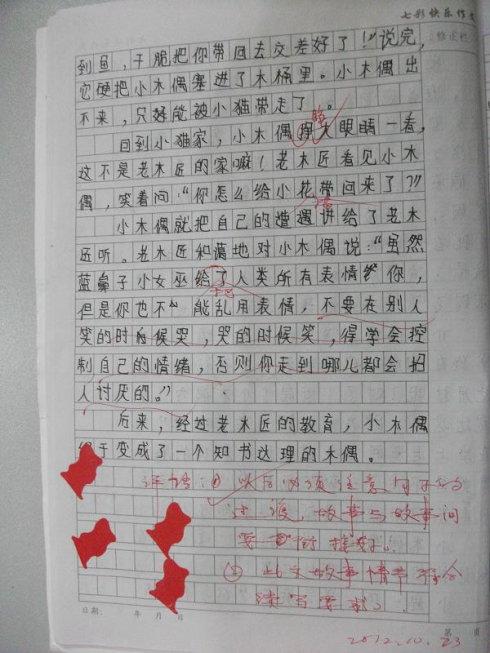 七彩快乐作文
修正栏
到鱼，干脆把你带回去交差好了！”说完，
它硬把小木偶塞进了木桶里。小木偶出
不来，只好能被小猫带走了。
回到小猫家，小木偶睁大眼睛一看，
这不是老木匠的家嘛！老木匠看见小木
偶，笑着问：“你怎么给小花带回来了？”
小木偶就把自己的遭遇讲给了老木
匠听。老木匠和蔼地对小木偶说：“虽然
蓝鼻子小女巫给了人类所有表情给你，
但是你也不能乱用表情，不要在别人
笑的时候哭，哭的时候笑，得学会控
制自己的情绪，否则你走到哪儿都会招
人讨厌的。”
后来，经过老木匠的教育，小木偶
终于变成了一个知书达理的木偶。
评语：① 以后必须注意句子的
过渡，故事与故事间
② 此文故事情节符合
续写要求。
日期： 年 月 日
第 页
2012.10.23